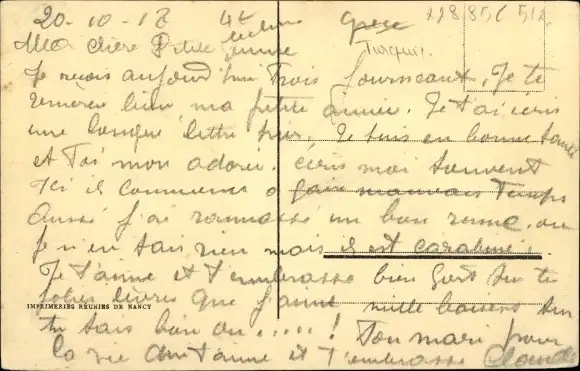 20-10-17 4e lettre Grèce 228 856 512
Ma chère Petite femme Turquie.
Je reçois aujourd'hui Trois Journeaux, Je te
remercie bien ma petite amie. Je t'ai écris
une longue lettre hier. Je suis en bonne santé
et Toi mon adorée. écris moi souvent
Ici il commence a faire mauvais Temps
Aussi j'ai ramassé un bon rume, ou
je n'en sais rien mais il est carabiné.
Je t'aime et t'embrasse bien fort sur te
jolies lèvres que j'aime mille baisers sur
IMPRIMERIES REUNIES DE NANCY
tu sais bien ou .....! Ton mari pour
la vie qui t'aime et t'embrasse Claude